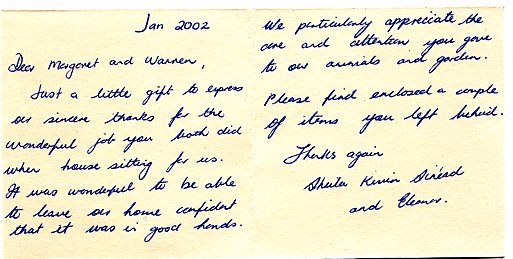 Jan 2002
Dear Margaret and Warren,
Just a little gift to express
our sincere thanks for the
wonderful job you both did
when house sitting for us.
It was wonderful to be able
to leave our home confident
that it was in good hands.
We particularly appreciate the
care and attention you gave
to our animals and garden.
Please find enclosed a couple
of items you left behind.
Thanks again
Sheila Kevin Sinéad
and Eleanor.